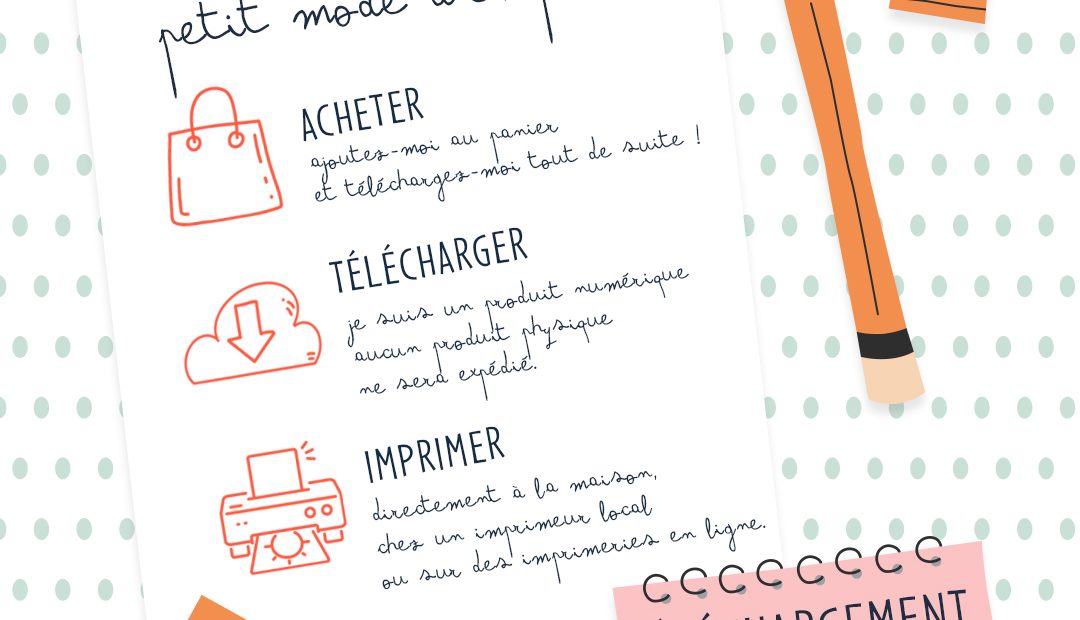 petit mode
ACHETER
ajoutez-moi au panier
et téléchargez-moi tout de suite !
TÉLÉCHARGER
je suis un produit numérique
aucun produit physique
ne sera expédié.
IMPRIMER
directement à la maison,
chez un imprimeur local
ou sur des imprimeries en ligne.